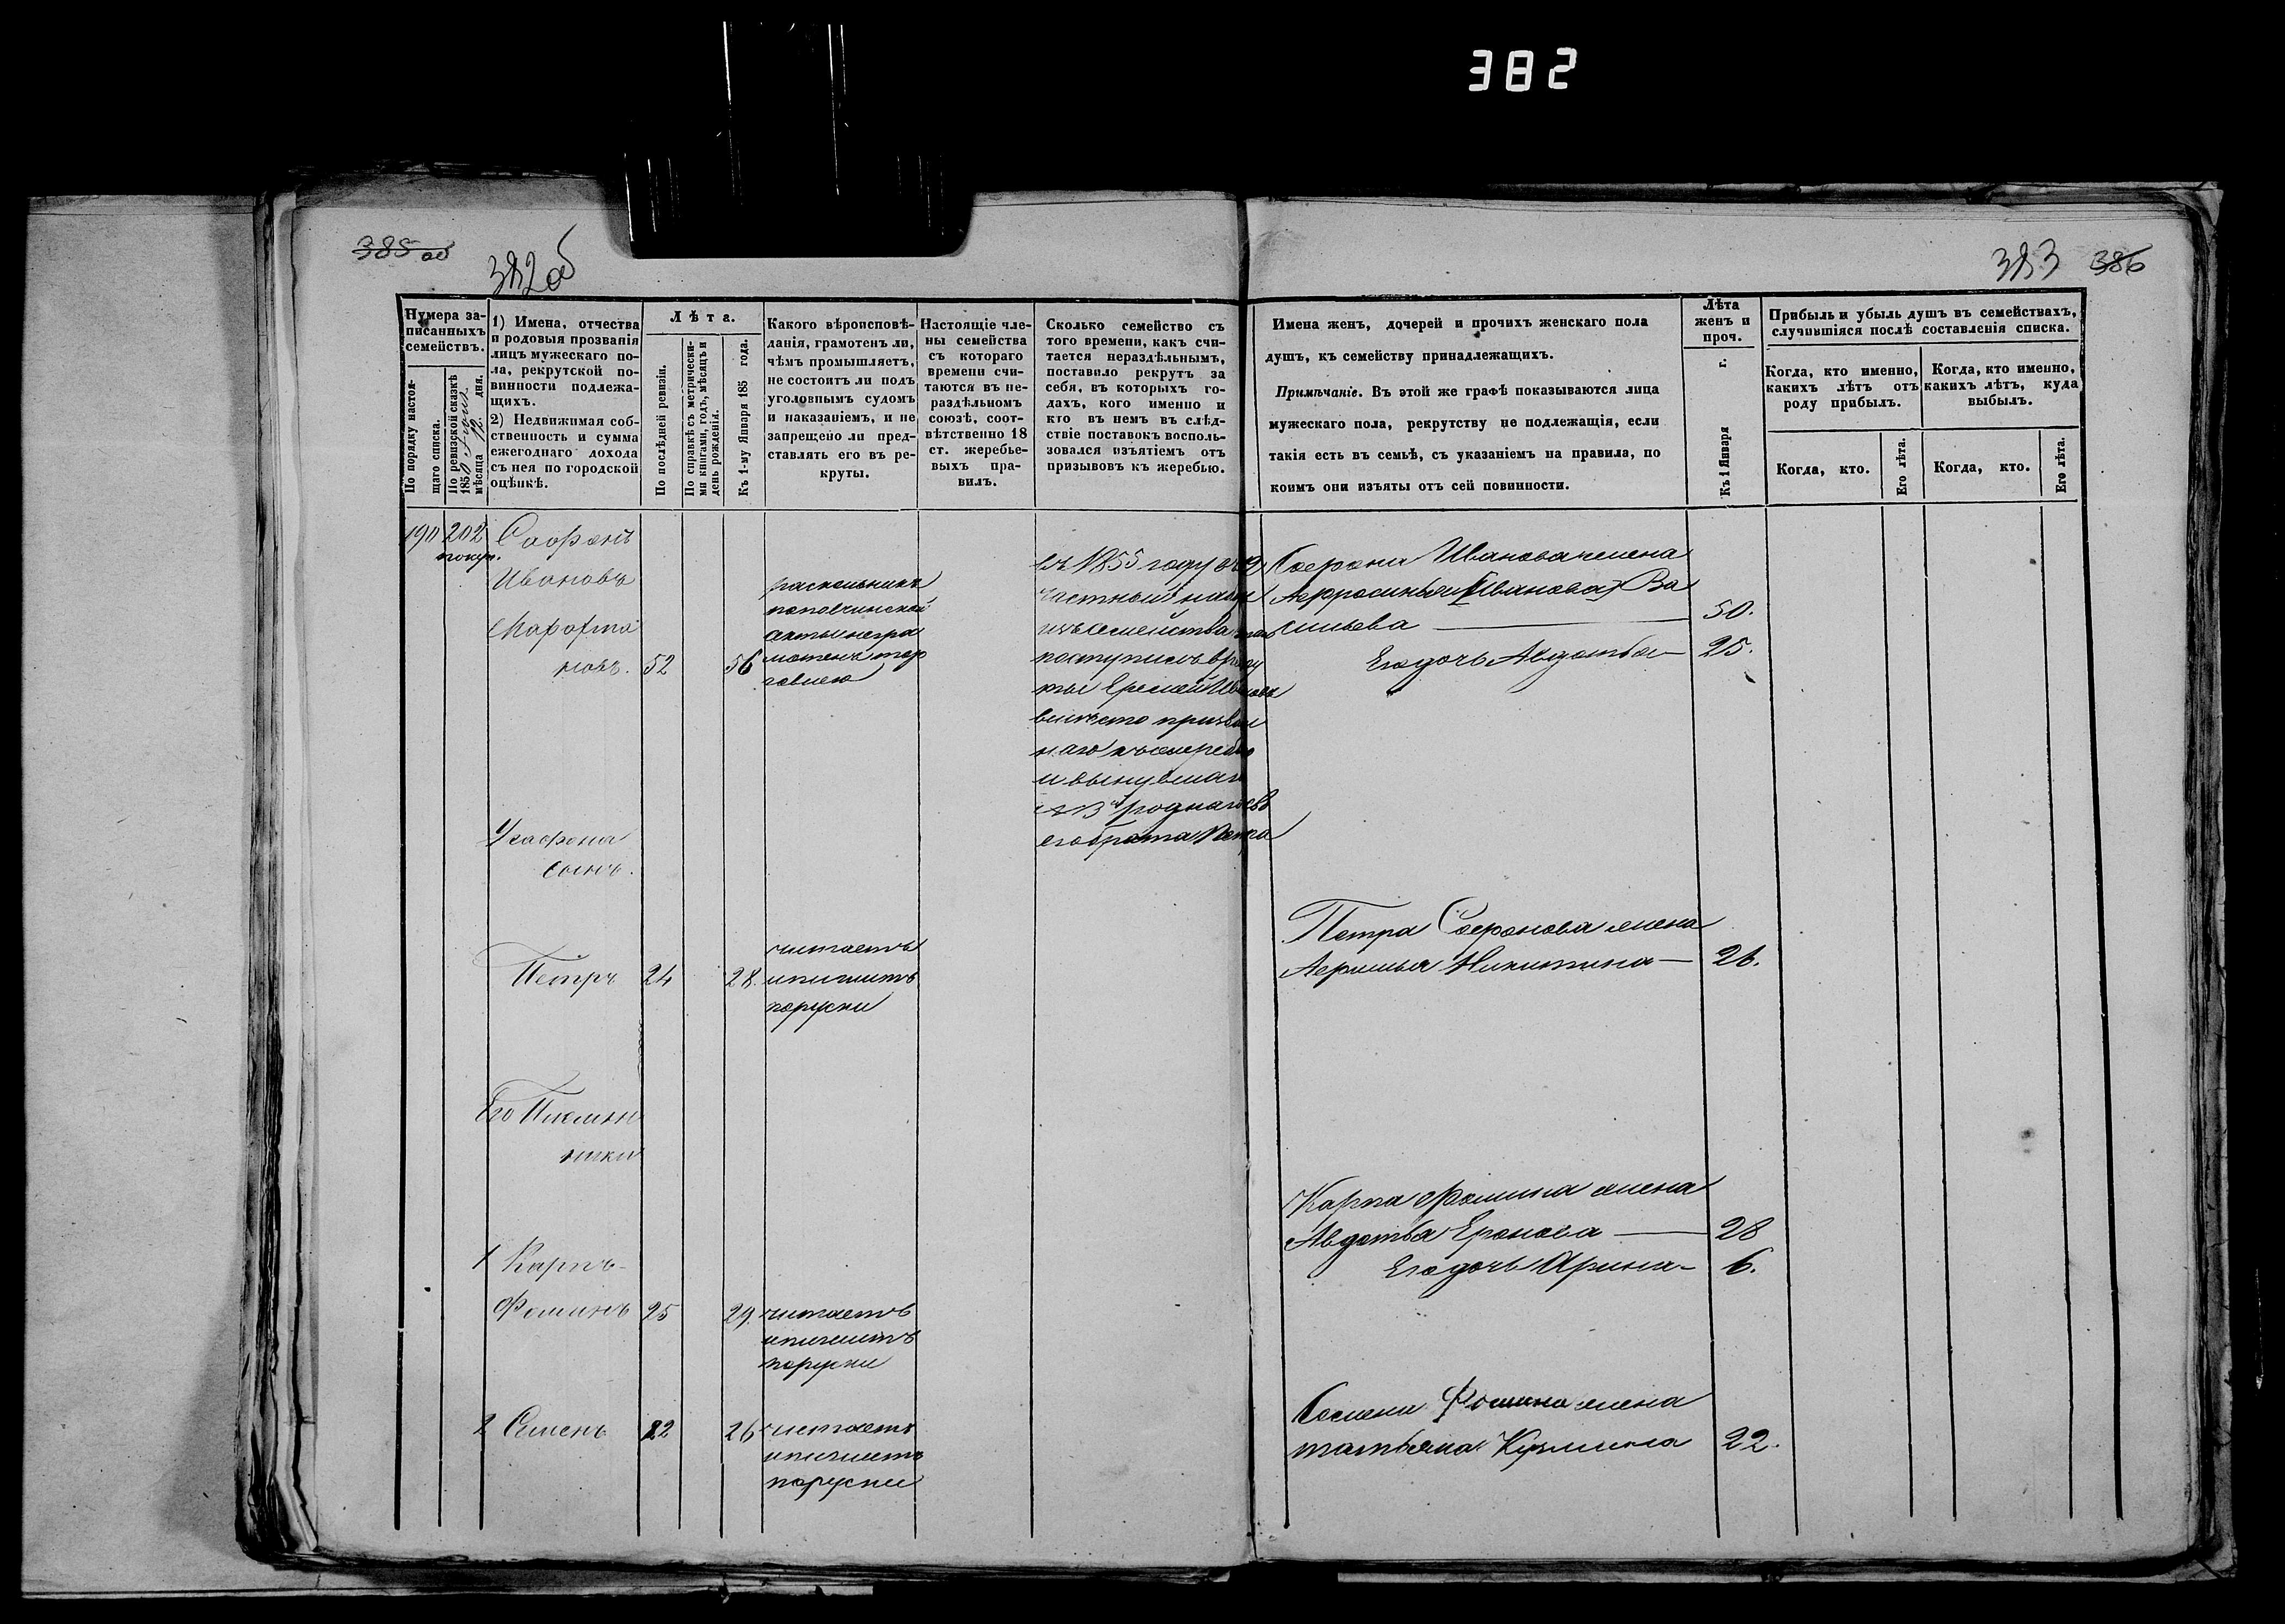 382
385 об
382 об
383
386
Нумера за-
писанныхъ
семействъ.
По порядку настоя-
щаго списка.
По ревизской сказкѣ
1850 Іюня
мѣсяца 12. дня.
1) Имена, отчества
и родовыя прозванія
лицъ мужескаго по-
ла, рекрутской по-
винности подлежа-
щихъ.
2) Недвижимая соб-
ственность и сумма
ежегоднаго дохода
съ нея по городской
оцѣнкѣ.
Лѣта.
По послѣдней ревизіи.
По справкѣ съ метрически-
ми книгами, годъ, мѣсяцъ и
день рожденія.
Къ 1-му Января 185 года.
Какого вѣроисповѣ-
данія, грамотенъ ли,
чѣмъ промышляетъ,
не состоитъ ли подъ
уголовнымъ судомъ
и наказаніемъ, и не
запрещено ли пред-
ставлять его въ ре-
круты.
Настоящіе чле-
ны семейства
съ котораго
времени счи-
таются въ не-
раздѣльномъ
союзѣ, соот-
вѣтственно 18
ст. жеребье-
выхъ пра-
вилъ.
Сколько семейство съ
того времени, какъ счи-
тается нераздѣльнымъ,
поставило рекрутъ за
себя, въ которыхъ го-
дахъ, кого именно и
кто въ немъ въ слѣд-
ствіе поставокъ восполь-
зовался изъятіемъ отъ
призывовъ къ жеребью.
Имена женъ, дочерей и прочихъ женскаго пола
душъ, къ семейству принадлежащихъ.
Примѣчаніе. Въ этой же графѣ показываются лица
мужескаго пола, рекрутству не подлежащія, если
такія есть въ семьѣ, съ указаніемъ на правила, по
коимъ они изъяты отъ сей повинности.
Лѣта
женъ и
проч.
Къ 1 Января г.
Прибыль и убыль душъ въ семействахъ,
случившіяся послѣ составленія списка.
Когда, кто именно,
какихъ лѣтъ отъ
роду прибылъ.
Когда, кто именно,
какихъ лѣтъ, куда
выбылъ.
Когда, кто.
Его лѣта.
Когда, кто.
Его лѣта.
190 202 Софонъ
Ивановъ
52 56
раскольникъ
поповчинской
секты негра
мотенъ тор
говлею
въ 1855 году
частный
изъ семейства
поступилъ в рекру
ты Еремей Ивановъ
вместо призван
наго къ жеребью
и вынувшаго
№ 13й роднаго
его брата Петра
Софона Иванова жена
Афросинья (Иванова) Ва
сильева 50.
Его дочь Авдотья 25.
У Софона
сынъ.
Петръ 24 28.
читаетъ
и пишитъ
поруски
Петра Софонова жена
Никитина 26.
Его Племян
ники
1 Карпъ
Фоминъ 25 29.
читаетъ
и пишитъ
поруски
Карпа Фомина жена
Авдотья 28
Его дочь Арина 6.
2 Семенъ 22 26
читаетъ
и пишитъ
поруски
Семена Фомина жена
татьяна Кузмина 22.